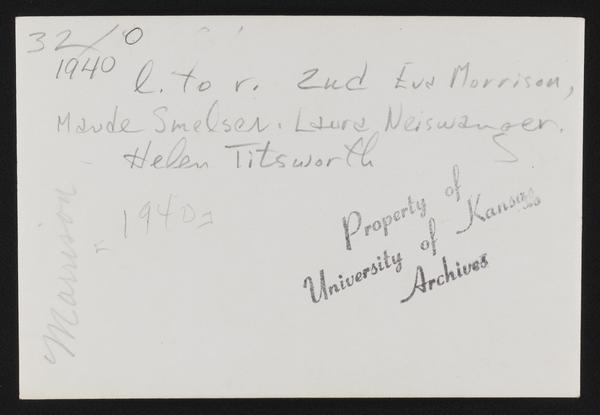 32/0
1940
l. to r. 2nd Eva Morrison,
Maude Smelser. Laura Neiswanger.
Helen Titsworth
1940s
Morrison
Property of
University of Kansas
Archives